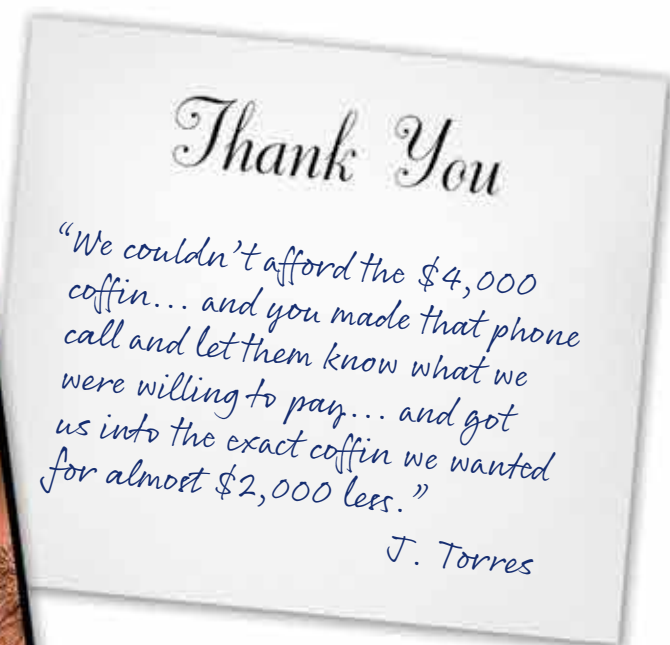 Thank You
“We couldn’t afford the $4,000
coffin... and you made that phone
call and let them know what we
were willing to pay... and got
us into the exact coffin we wanted
for almost $2,000 less.”
J. Torres